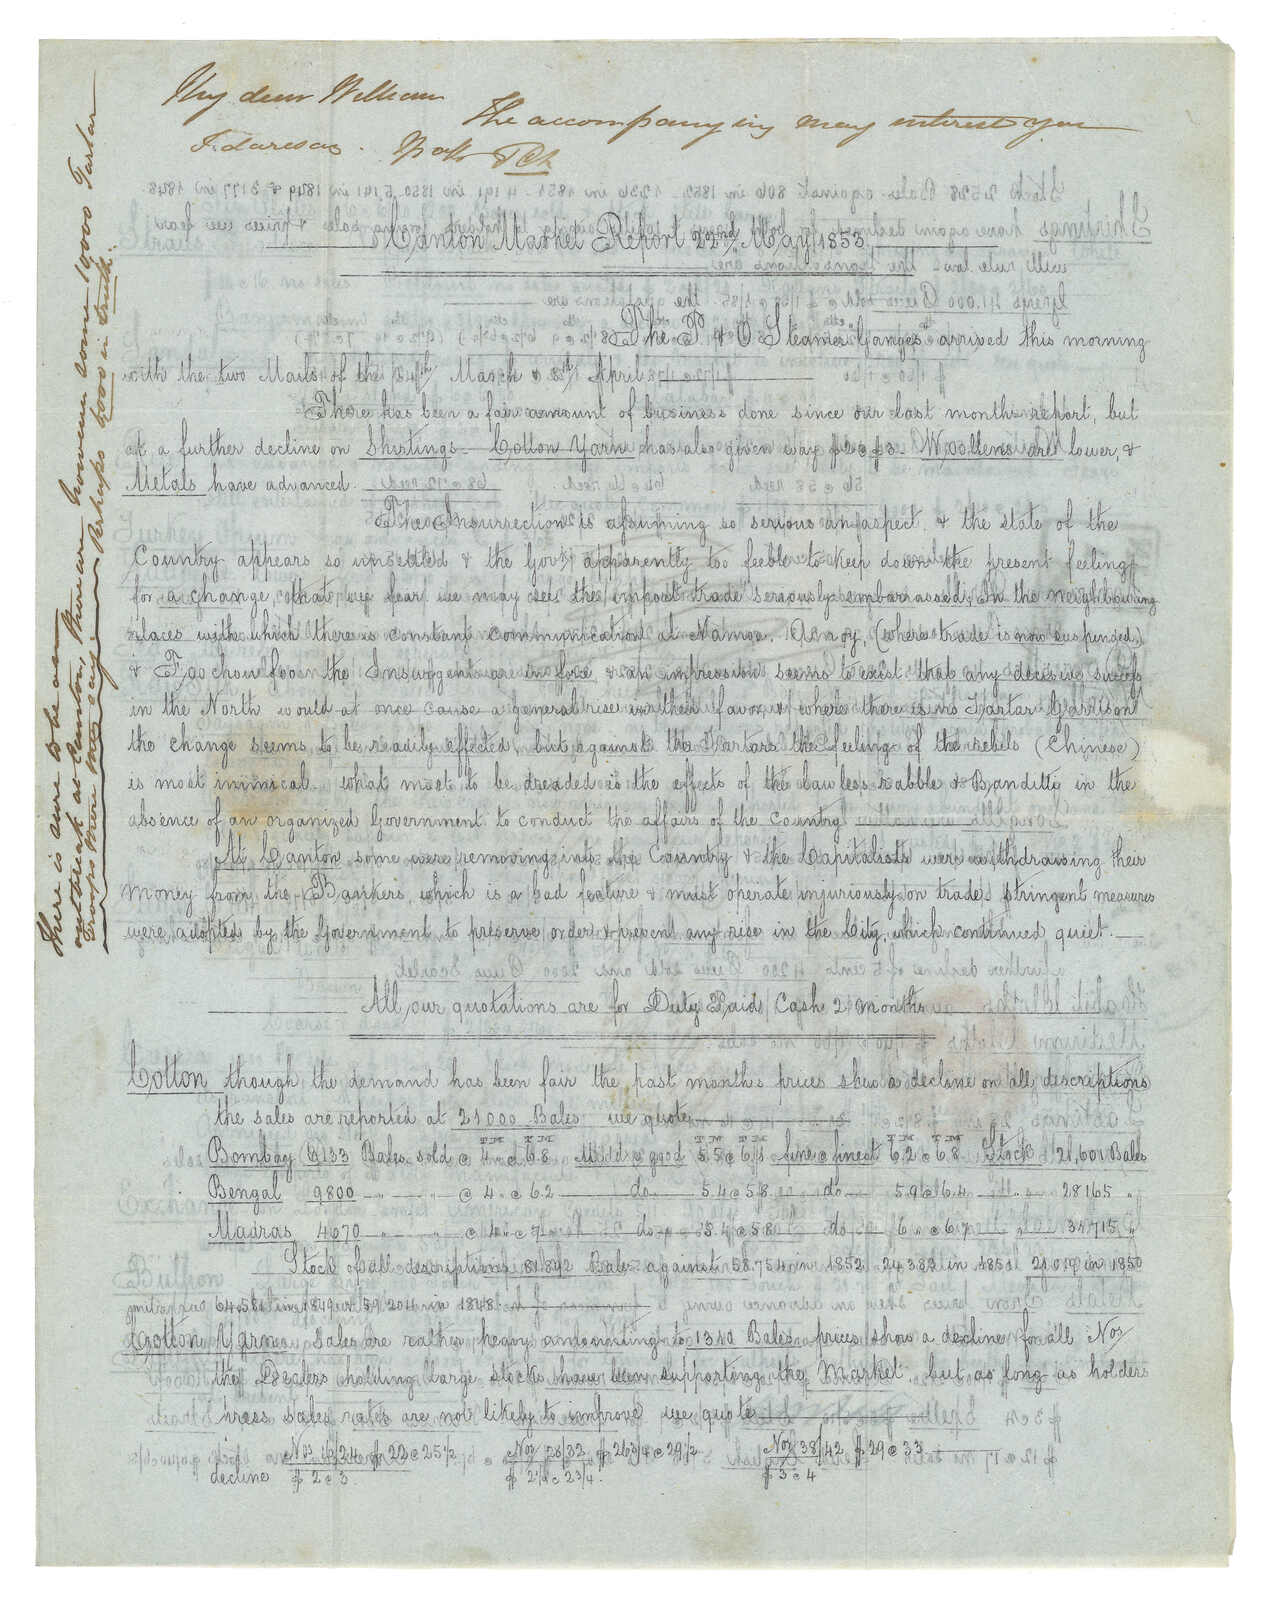 My dear William
The accompanying may interest you
Canton Market Report 22nd May 1853
The P & O Steamer "Ganges" arrived this morning
with the two Mails of the 24th March & 8th April
There has been a fair amount of business done since our last months report, but
at a further decline on Shirtings Cotton Yarn has also given way $2 @ $3 Woollens are lower, &
Metals have advanced.
The Insurrection is assuming so serious an aspect, & the state of the
Country appears so unsettled & the Govt apparently too feeble to keep down the present feeling
for a change, that we fear we may see the import trade seriously embarrassed, In the neighbouring
places with which there is constant communication at Namoa, Amoy, (where trade is now suspended)
& Foochowfoo the Insurgents are in force & an impression seems to exist that any decisive success
in the North would at once cause a general rise in their favor & where there is no Tartar Garrison
the change seems to be readily effected, but against the Tartars the feeling of the rebels (Chinese)
is most inimical. what most to be dreaded is the effects of the lawless rabble & Banditty in the
absence of an organized Government to conduct the affairs of the Country
At Canton some were removing into the Country & the Capitalists were withdrawing their
money from the Bankers, which is a bad feature & must operate injuriously on trade, stringent measures
were adopted by the Government to preserve order & prevent any rise in the City, which continued quiet.
All our quotations are for Duty Paid Cash 2 months
Cotton though the demand has been fair the past months prices shew a decline on all descriptions
the sales are reported at 21000 Bales we quote
Bombay 6133 Bales sold @ 4 @ 6.8 Midd @ good 5.5 @ 6.1 fine @ finest 6.2 @ 6.8 Stock 21,601 Bales
Bengal 9800 " " @ 4 @ 6.2 do 5.4 @ 5.8 do 5.9 @ 6.4 " 28165 "
Madras 4670 " " @ 4 " @ 7 do 5.4 @ 5.8 do 6 " @ 6.7 " 31715 "
Stock of all descriptions 81842 Bales against 58.754 in 1852 24383 in 1851 21019 in 1850
64.581 in 1849 & 59204 in 1848
Cotton Yarn Sales are rather heavy amounting to 1340 Bales prices show a decline for all Nos
the Dealers holding large stocks have been supporting the Market, but as long as holders
press sales rates are not likely to improve we quote
Nos 16/24 $22 @ 25 1/2 Nos 28/32 $26 3/4 @ 29 1/2 Nos 38/42 $29 @ 33
decline $2 @ 3 $2 1/4 @ 2 3/4 $3 @ 4
There is sure to be an
outbreak at Canton, there are however some 10000 Tartar
Troops there they say. Perhaps 6000 in truth.